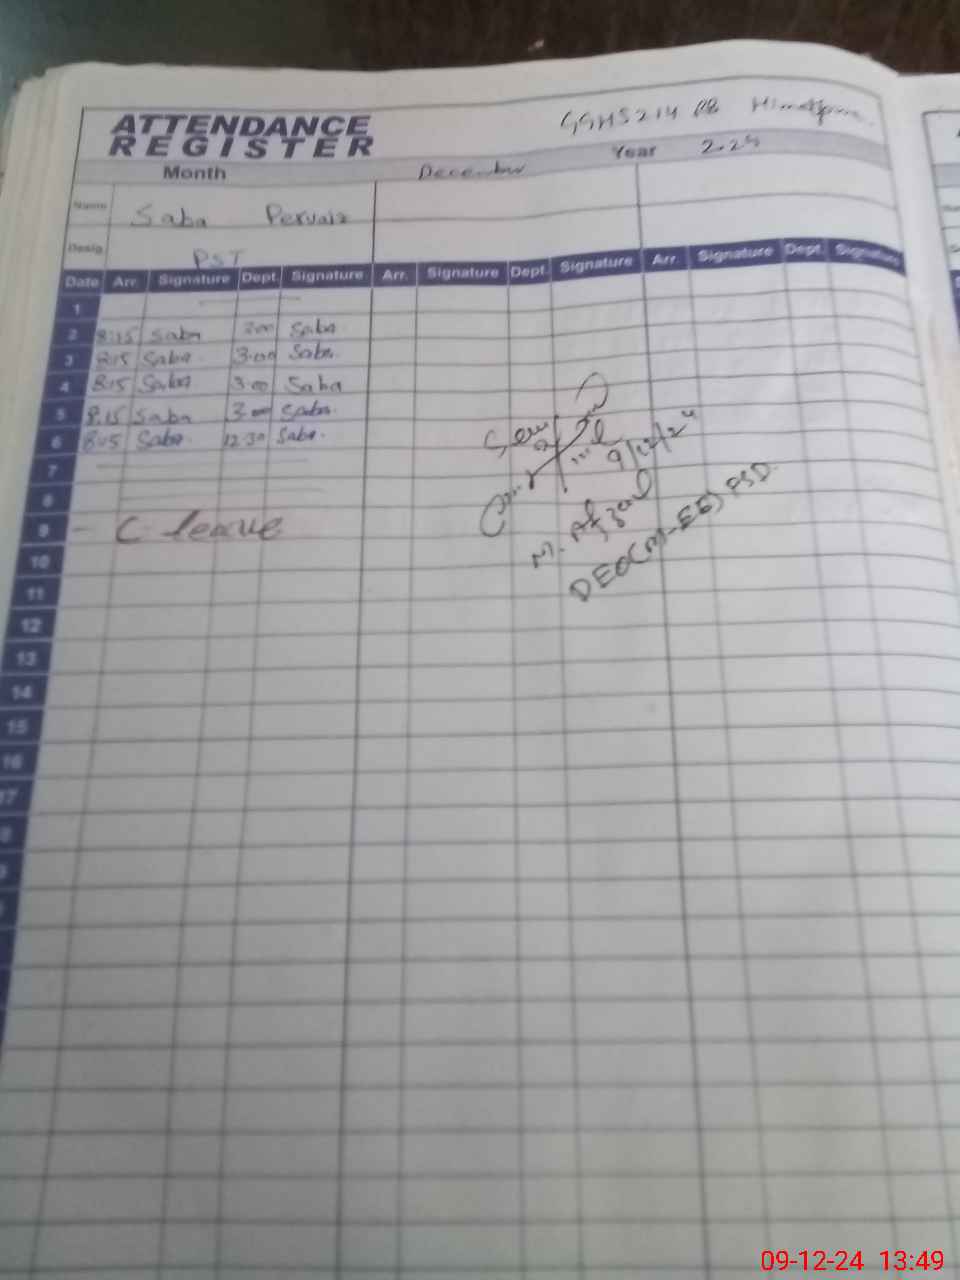 ATTENDANCE
REGISTER
GGHS 214 PB
Month December Year
Name Saba Pervaiz
Desig. PST
Date Arr. Signature Dept. Signature Arr. Signature Dept. Signature Arr. Signature Dept. Signature
1
2 8:15 Saba 3.00 Saba
3 8:15 Saba 3.00 Saba
4 8:15 Saba 3.00 Saba
5 8:15 Saba 3.00 Saba
6 8:15 Saba 12.30 Saba
7
8
9 C leave
9/12/24
M. Afzal
DEO(M-EE) PSD
10
11
12
13
14
15
16
17
09-12-24 13:49